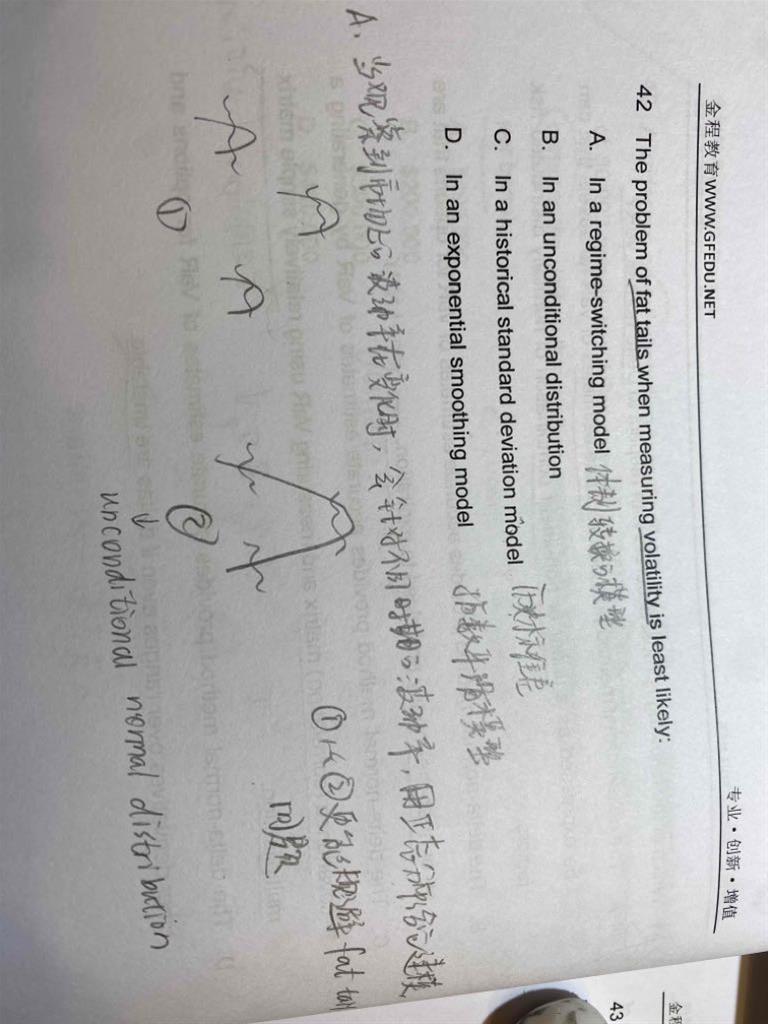 金程教育WWW.GFEDU.NET 专业·创新·增值
42 The problem of fat tails when measuring volatility is least likely:
A. In a regime-switching model 体制转换的模型
B. In an unconditional distribution
C. In a historical standard deviation model 历史标准差
D. In an exponential smoothing model 指数平滑模型
A. 当观察到市场上的波动率在变化时, 会针对不同时期的波动率, 用正态分布给它建模
①比②更能规避fat tail
问题
①
②
↓
unconditional normal distribution
金程
43